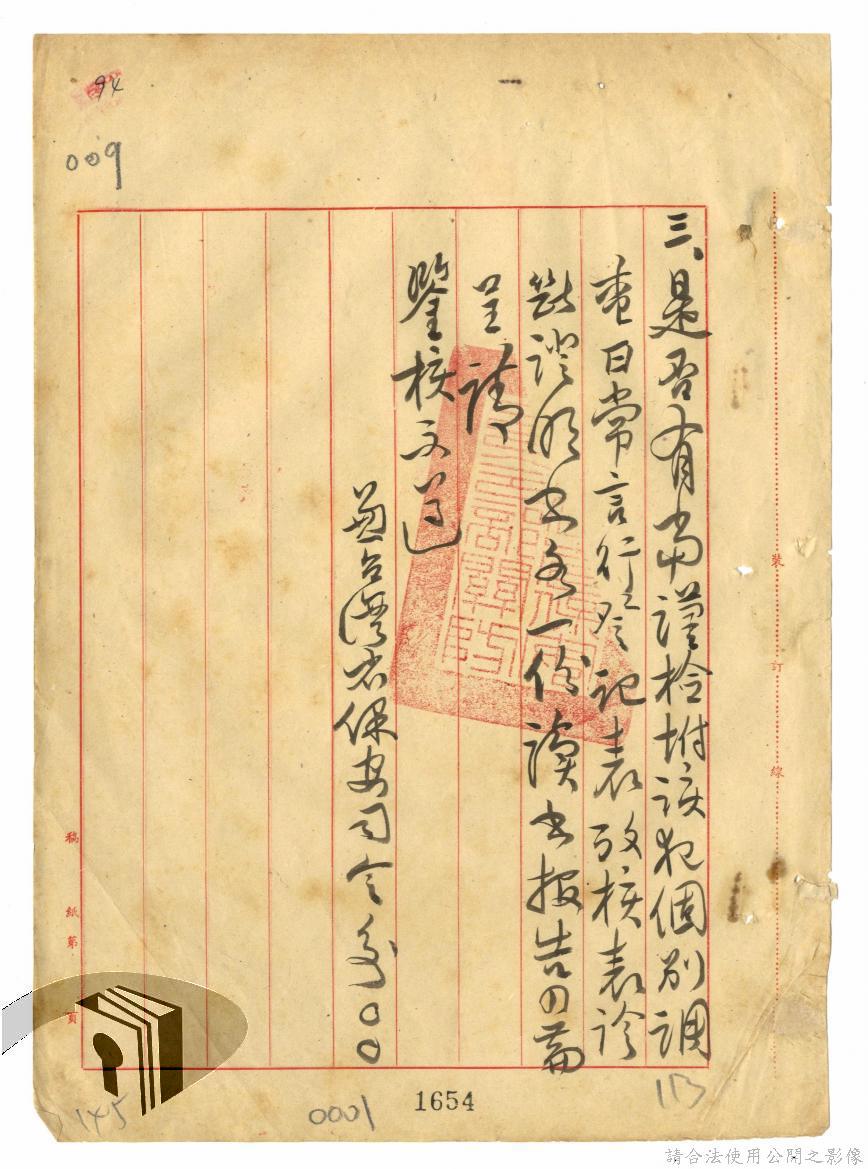 94
009
三、是否有當謹檢附該犯個別調
查日常言行登記表攷核表診
斷證明書各一份讀書報告四篇
呈請
鑒核示遵
兼台灣省保安司令俞○○
裝訂線
稿紙第 頁
145
0001
1654
113
請合法使用公開之影像